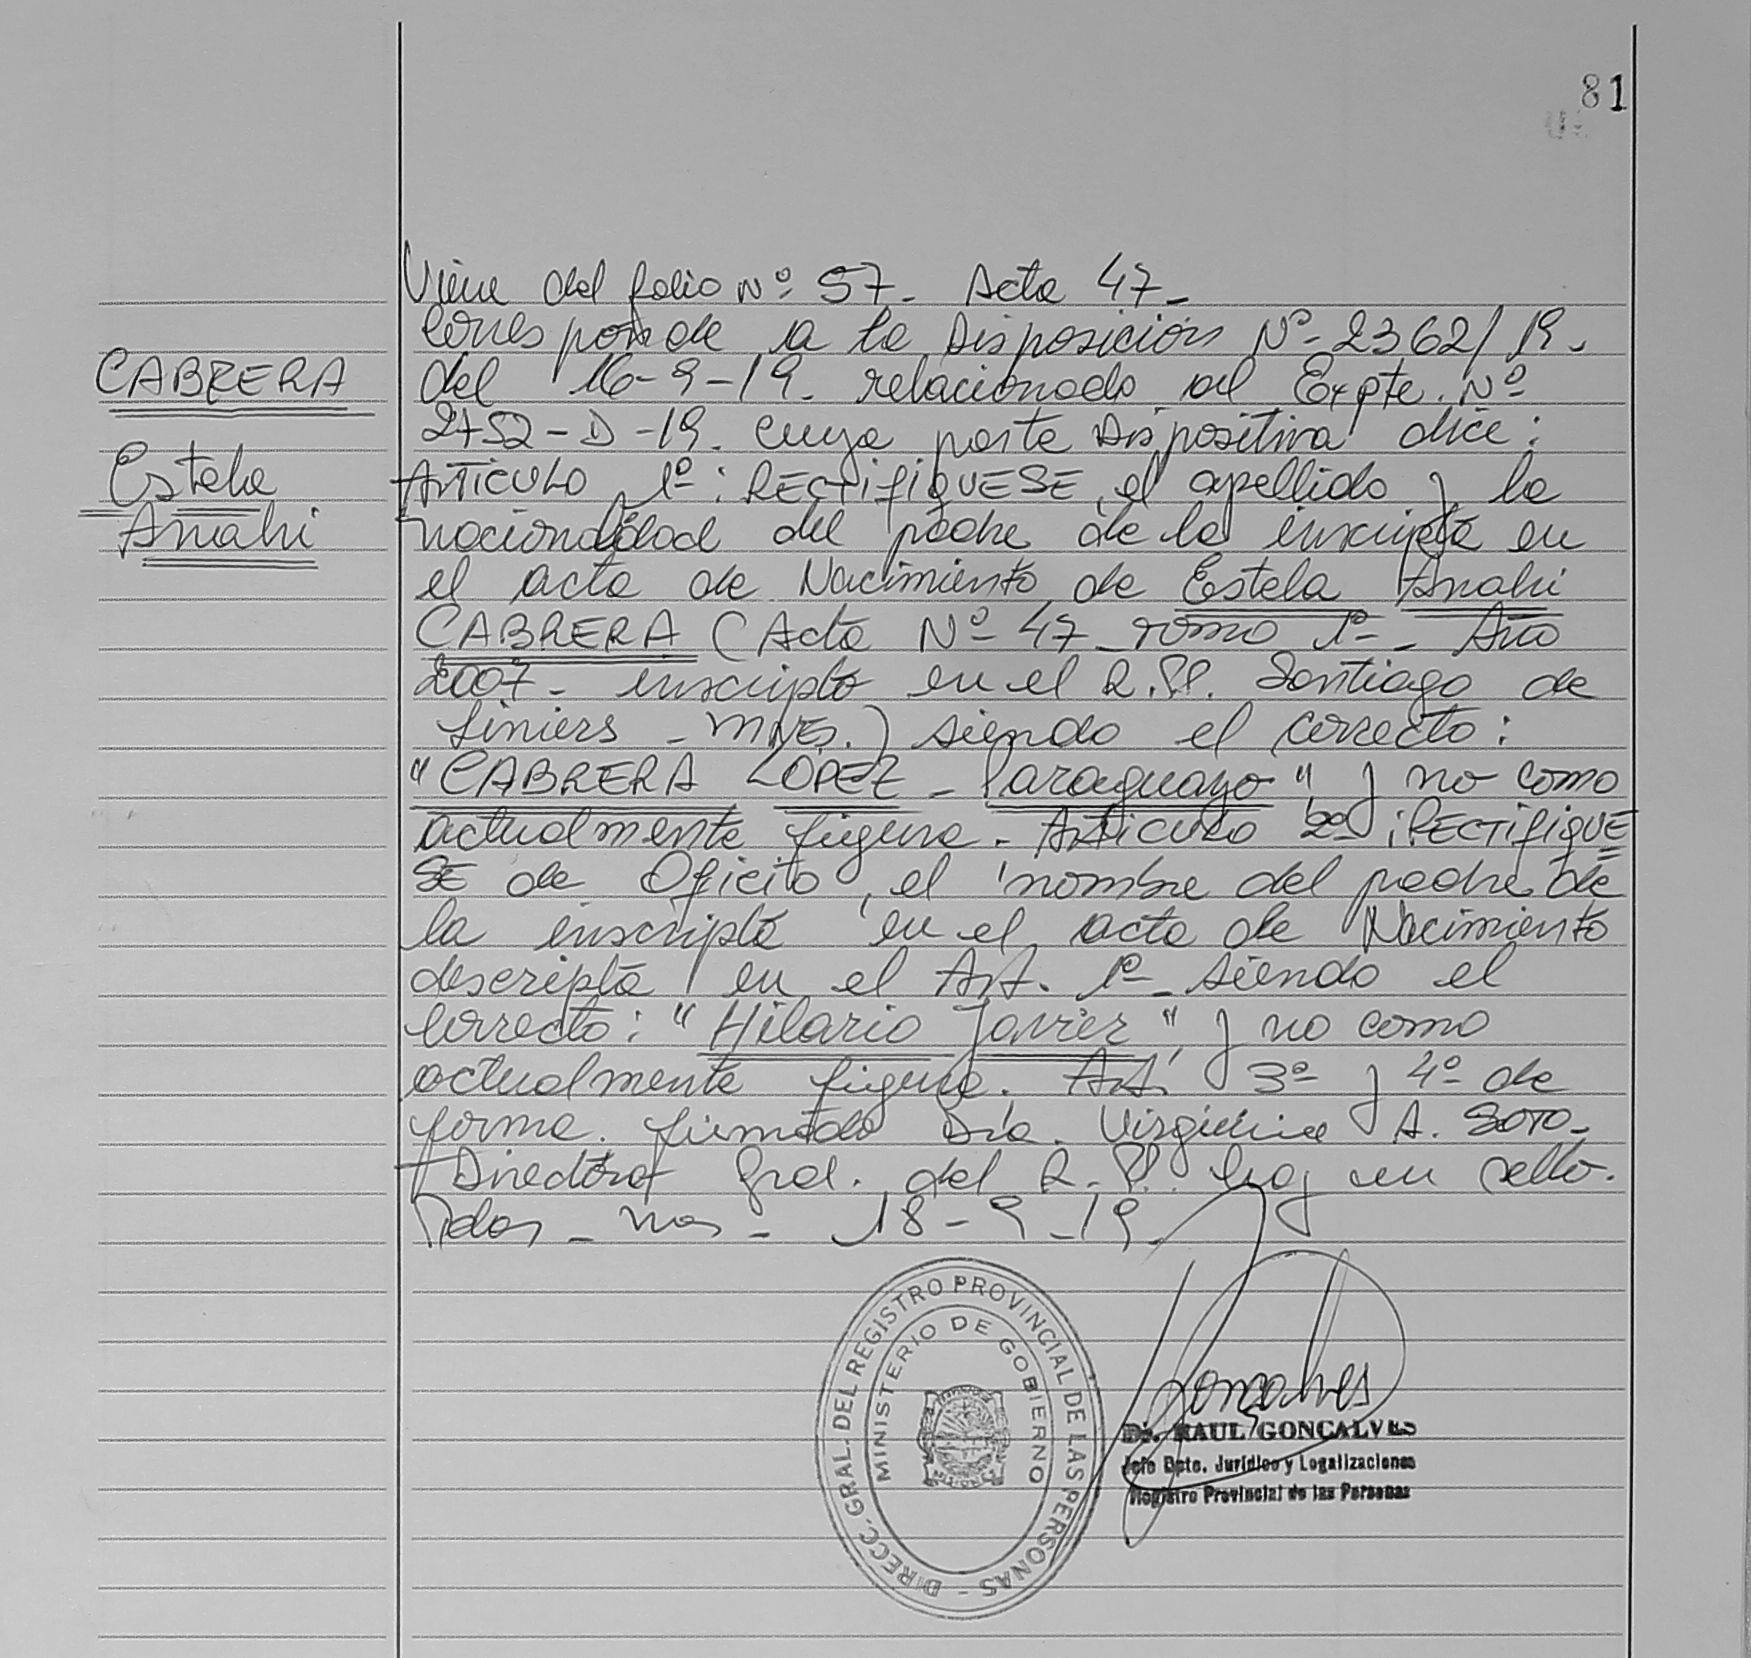 81
CABRERA
Estela
Anahi
Viene del folio Nº 57- Acta 47-
Corresponde a la Disposición Nº 2362/19.
del 16-9-19. relacionado al Expte. Nº
2752-D-19. cuya parte Dispositiva dice:
ARTICULO 1º: RECTIFIQUESE, el apellido y la
nacionalidad del padre de la inscripta en
el acta de Nacimiento de Estela Anahi
CABRERA (Acta Nº 47 - Tomo 1º - Año
2007 - inscripta en el R.P. Santiago de
Liniers - MNES.) siendo el correcto:
"CABRERA LÓPEZ - Paraguayo" y no como
actualmente figura. ARTICULO 2º: RECTIFIQUE
SE de Oficio, el nombre del padre de
la inscripta en el acta de Nacimiento
descripta en el Art. 1º siendo el
correcto: "Hilario Javier", y no como
actualmente figura. Art. 3º y 4º de
forma. firmado Dra. Virginia A. SOTO-
Directora Gral. del R.P. hay un sello.
Pdas - Mnes - 18-9-19-
DIRECC. GRAL. DEL REGISTRO PROVINCIAL DE LAS PERSONAS -
MINISTERIO DE GOBIERNO
Goncalves
Dr. RAUL GONÇALVES
Jefe Dpto. Jurídico y Legalizaciones
Registro Provincial de las Personas